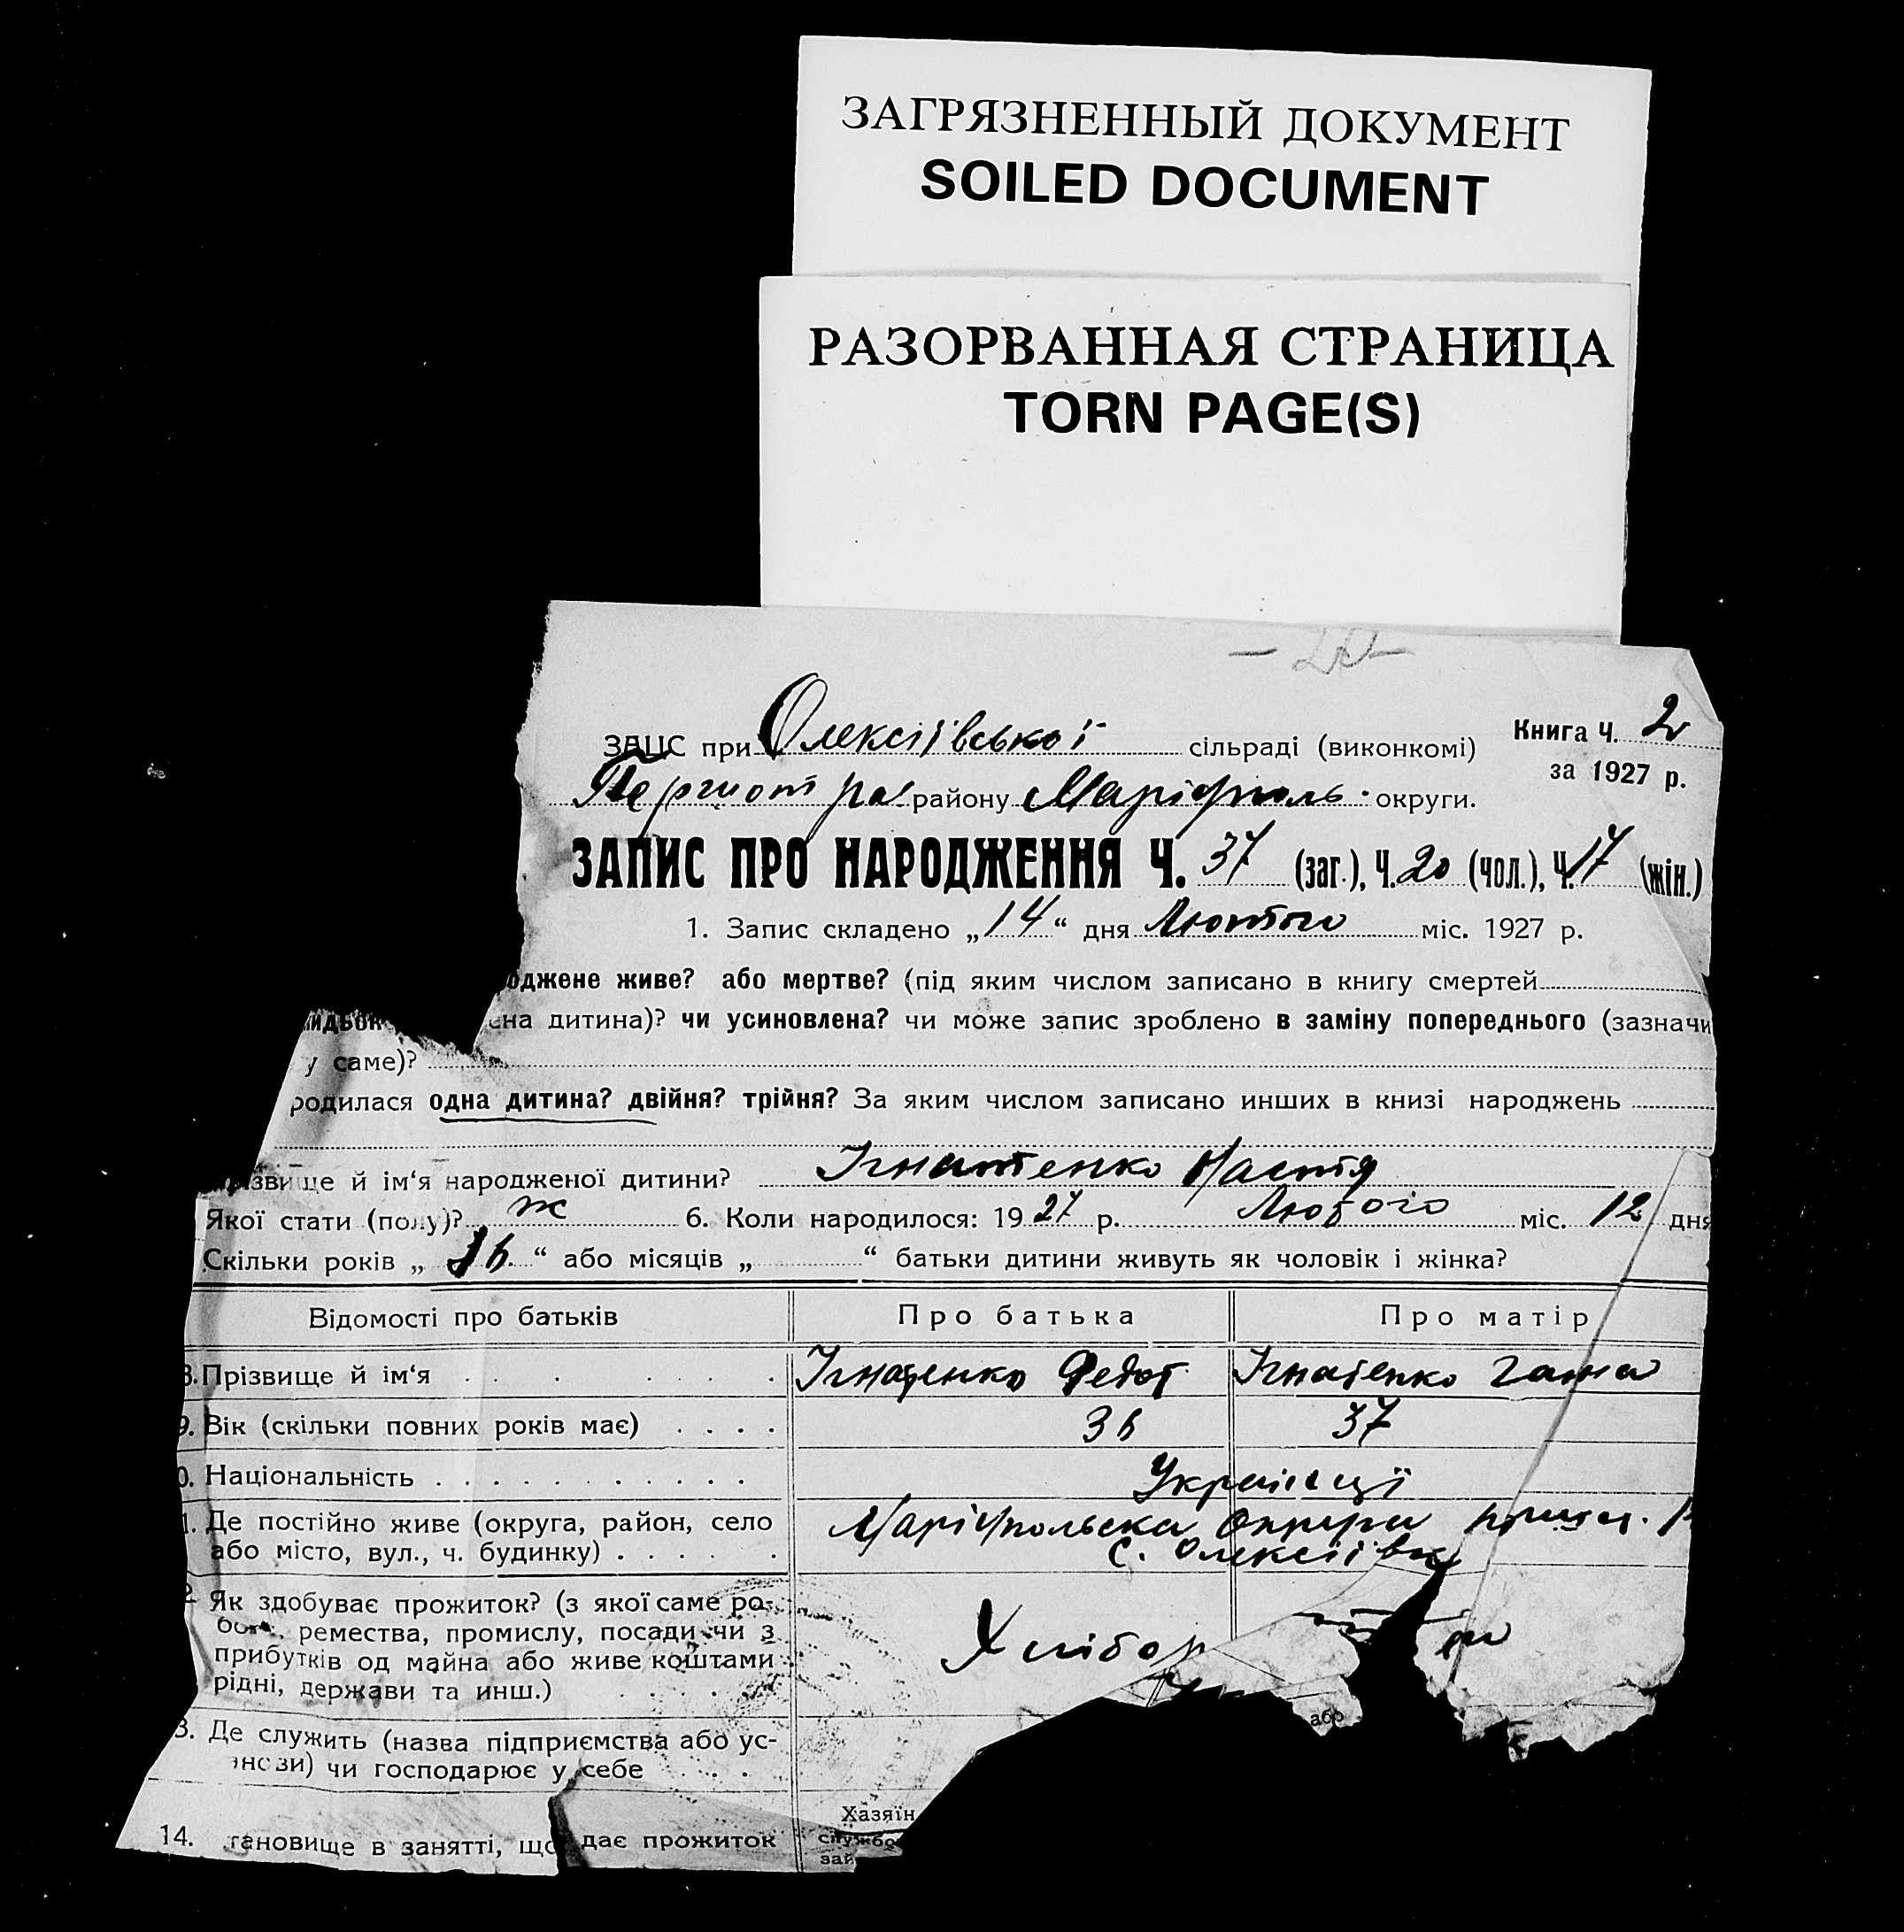 ЗАГРЯЗНЕННЫЙ ДОКУМЕНТ
SOILED DOCUMENT
РАЗОРВАННАЯ СТРАНИЦА
TORN PAGE(S)
ЗАЦС при Олексіївської сільраді (виконкомі) Книга Ч. 2
району Маріюпіль. округи. за 1927 р.
ЗАПИС ПРО НАРОДЖЕННЯ Ч. 37 (заг.), Ч. 20 (чол.), Ч. 17 (жін.)
1. Запис складено „14“ дня Лютого міс. 1927 р.
оджене живе? або мертве? (під яким числом записано в книгу смертей
ена дитина)? чи усиновлена? чи може запис зроблено в заміну попереднього (зазначи
у саме)?
родилася одна дитина? двійня? трійня? За яким числом записано инших в книзі народжень
звище й ім‘я народженої дитини? Ігнатенко Настя
Якої стати (полу)? ж 6. Коли народилося: 1927 р. Лютого міс. 12 дня
Скільки років „16“ або місяців „ “ батьки дитини живуть як чоловік і жінка?
Відомості про батьків Про батька Про матір
8. Прізвище й ім‘я Ігнатенко Федот Ігнатенко Ганна
9. Вік (скільки повних років має) 36 37
0. Національність Українці
1. Де постійно живе (округа, район, село Маріюпольска Округа
або місто, вул., ч. будинку) с. Олексіївка
2. Як здобуває прожиток? (з якої саме ро-
боти, ремества, промислу, посади чи з Хлібор
прибутків од майна або живе коштами
рідні, держави та инш.)
або
3. Де служить (назва підприємства або ус-
анови) чи господарює у себе
Хазяїн
14. тановище в занятті, що дає прожиток службо
зай